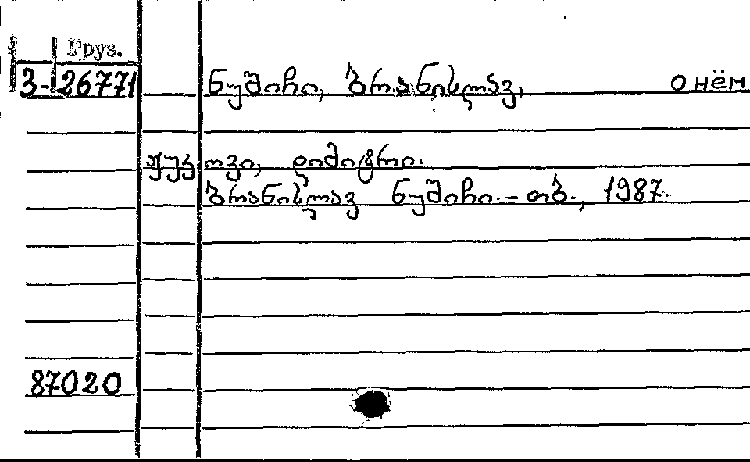 Груз.
3-26771
ნუშიჩი, ბრანისლავ. о нём
ჟუჟ ოვი, დიმიტრი.
ბრანისლავ ნუშიჩი. – თბ., 1987.
87020